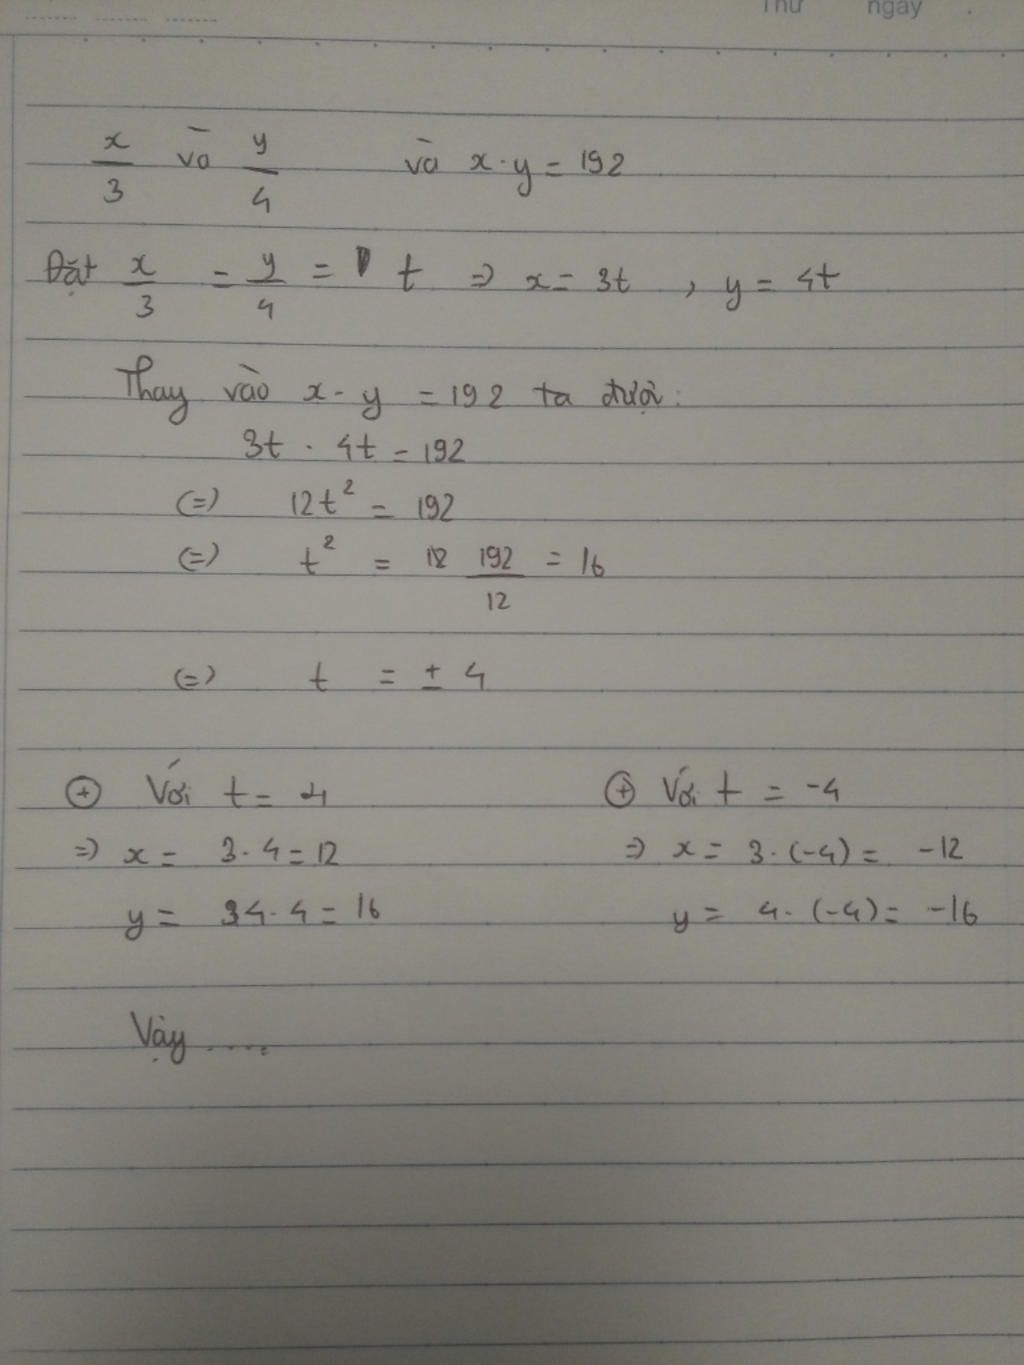 Thứ ngày
x/3 và y/4 và x·y = 192
Đặt x/3 = y/4 = t => x = 3t , y = 4t
Thay vào x-y = 192 ta được:
3t · 4t = 192
(=) 12t² = 192
(=) t² = 192/12 = 16
(=) t = ± 4
⊕ Với t = 4 ⊕ Với t = -4
=> x = 3·4 = 12 => x = 3·(-4) = -12
y = 4·4 = 16 y = 4·(-4) = -16
Vậy .....